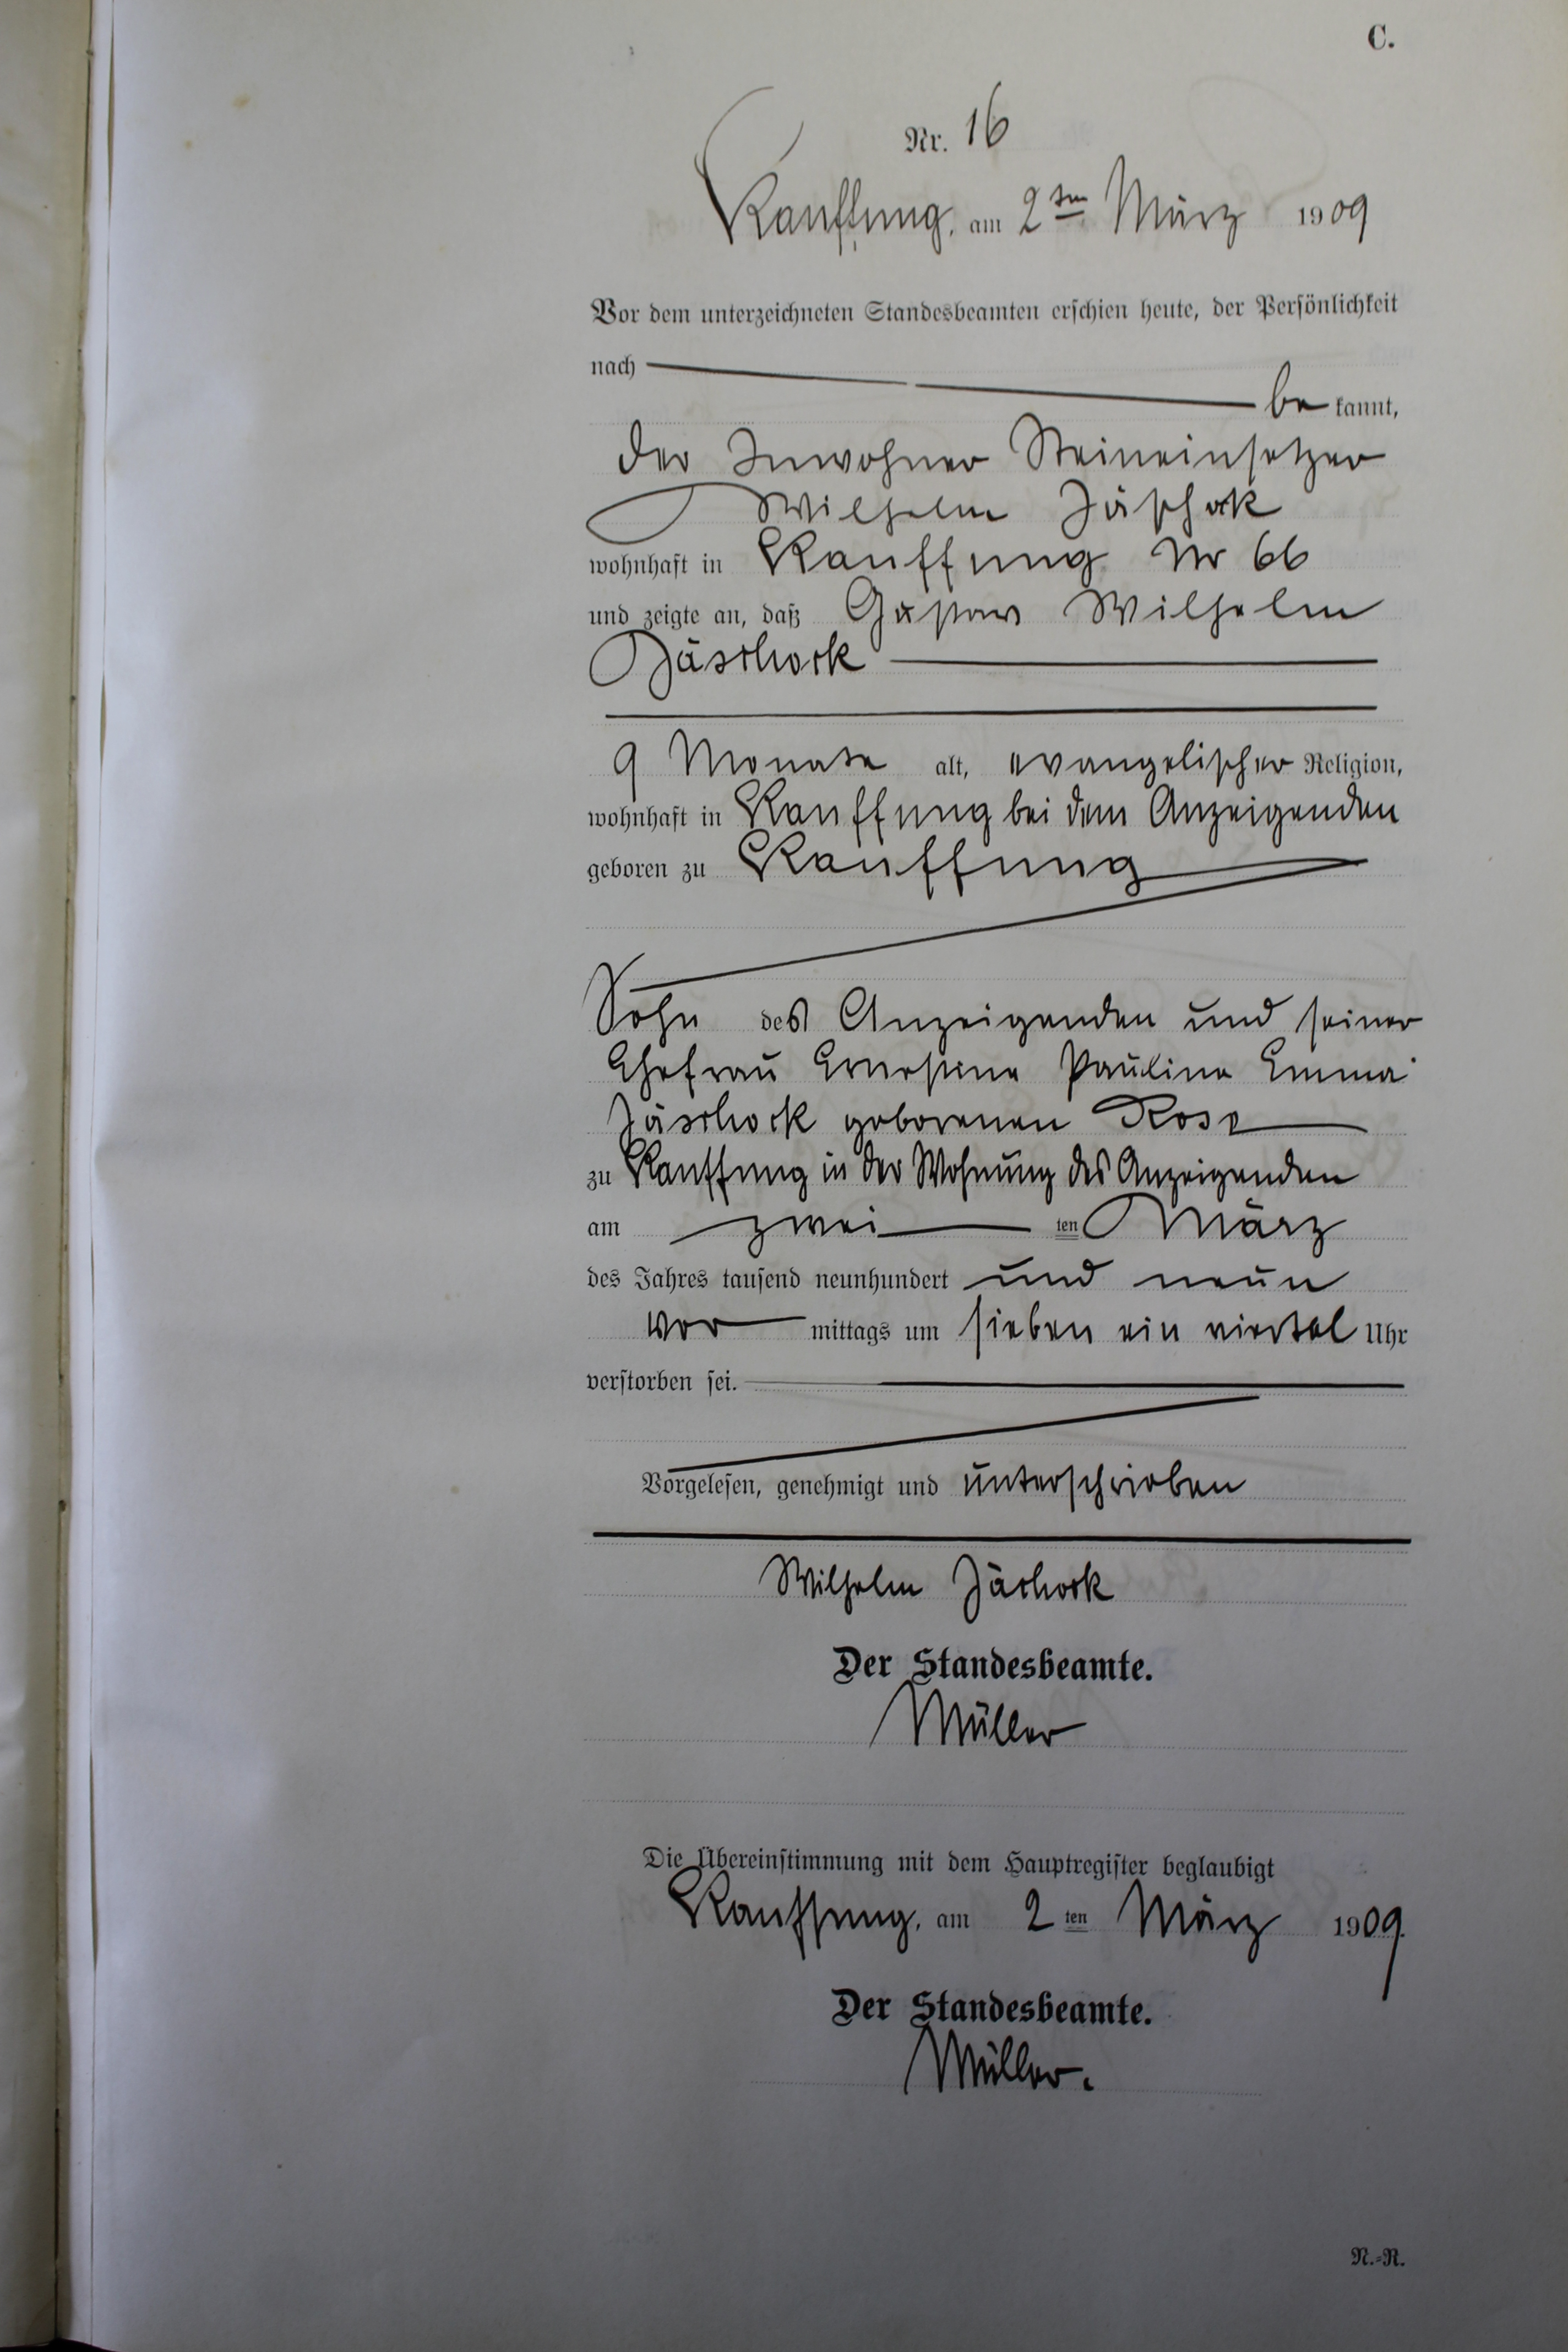 C.
Nr. 16
Kauffung, am 2ten März 1909
Vor dem unterzeichneten Standesbeamten erschien heute, der Persönlichkeit
nach
be kannt,
der Inwohner Steineinsetzer
Wilhelm Jäschok
wohnhaft in Kauffung Nr 66
und zeigte an, daß Gustav Wilhelm
Jäschock
9 Monate alt, evangelischer Religion,
wohnhaft in Kauffung bei dem Anzeigenden
geboren zu Kauffung
Sohn des Anzeigenden und seiner
Ehefrau Ernestine Pauline Emma
Jäschock geborenen Rose
zu Kauffung in der Wohnung des Anzeigenden
am zwei ten März
des Jahres tausend neunhundert und neun
vor mittags um sieben ein viertel Uhr
verstorben sei.
Vorgelesen, genehmigt und unterschrieben
Wilhelm Jäschock
Der Standesbeamte.
Müller
Die Übereinstimmung mit dem Hauptregister beglaubigt
Kauffung, am 2 ten März 1909.
Der Standesbeamte.
Müller.
N.=R.